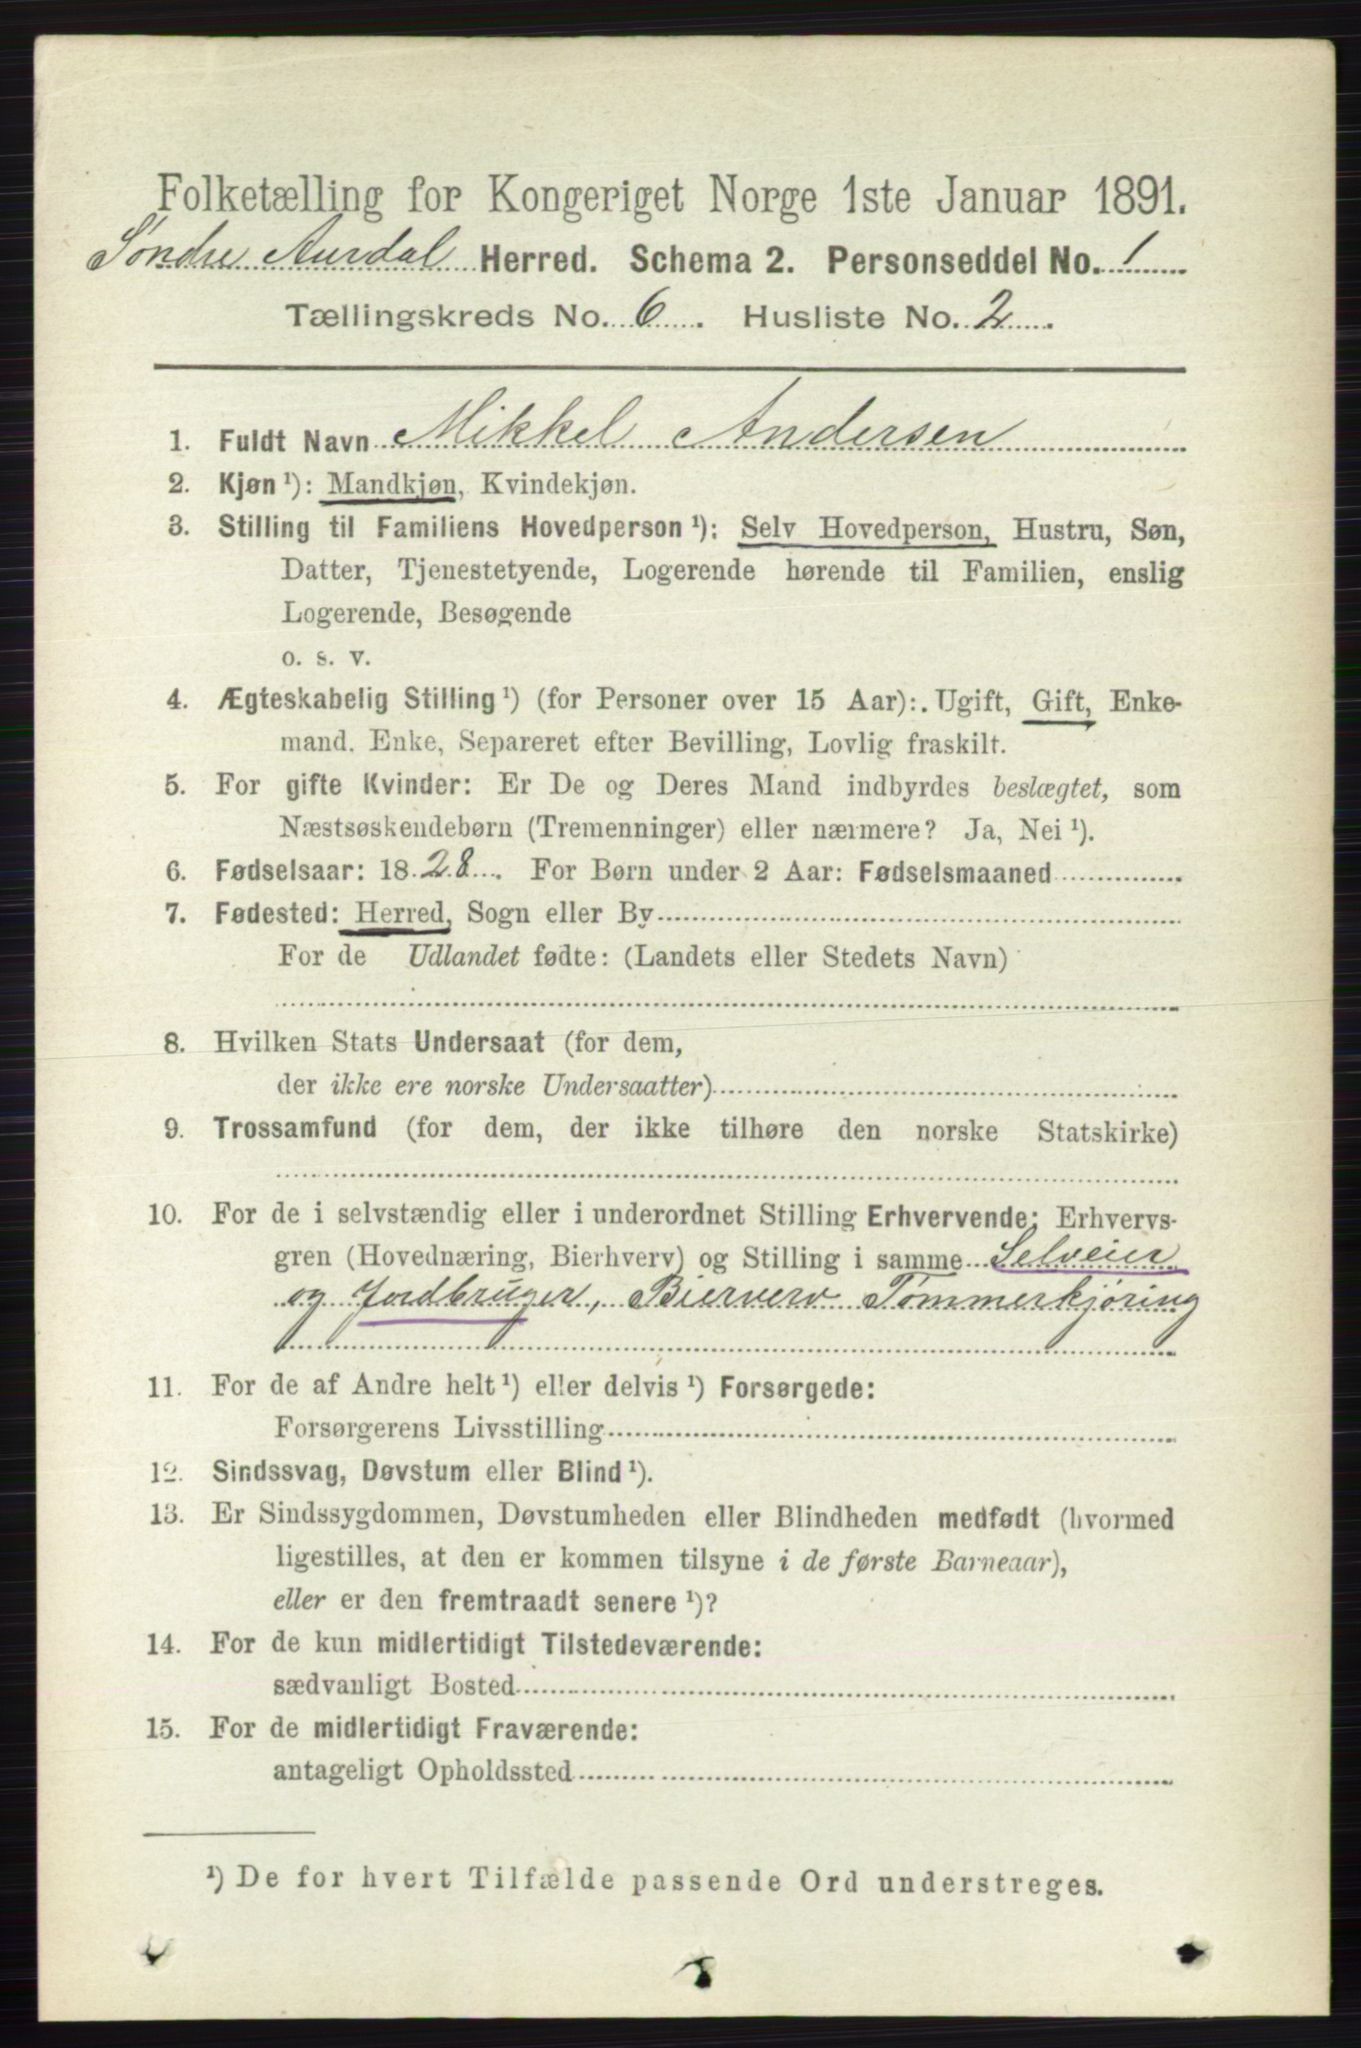 Folketælling for Kongeriget Norge 1ste Januar 1891.
Søndre Aurdal Herred. Schema 2. Personseddel No. 1
Tællingskreds No. 6. Husliste No. 2.
1. Fuldt Navn Mikkel Andersen
2. Kjøn¹): Mandkjøn, Kvindekjøn.
3. Stilling til Familiens Hovedperson¹): Selv Hovedperson, Hustru, Søn,
Datter, Tjenestetyende, Logerende hørende til Familien, enslig
Logerende, Besøgende
o. s. v.
4. Ægteskabelig Stilling¹) (for Personer over 15 Aar): Ugift, Gift, Enke-
mand, Enke, Separeret efter Bevilling, Lovlig fraskilt.
5. For gifte Kvinder: Er De og Deres Mand indbyrdes beslægtet, som
Næstsøskendebørn (Tremenninger) eller nærmere? Ja, Nei¹).
6. Fødselsaar: 1828. For Børn under 2 Aar: Fødselsmaaned
7. Fødested: Herred, Sogn eller By
For de Udlandet fødte: (Landets eller Stedets Navn)
8. Hvilken Stats Undersaat (for dem,
der ikke ere norske Undersaatter)
9. Trossamfund (for dem, der ikke tilhøre den norske Statskirke)
10. For de i selvstændig eller i underordnet Stilling Erhvervende: Erhvervs-
gren (Hovednæring, Bierhverv) og Stilling i samme Selveier
og Jordbruger, Bierverv Tømmerkjøring
11. For de af Andre helt¹) eller delvis¹) Forsørgede:
Forsørgerens Livsstilling
12. Sindssvag, Døvstum eller Blind¹).
13. Er Sindssygdommen, Døvstumheden eller Blindheden medfødt (hvormed
ligestilles, at den er kommen tilsyne i de første Barneaar),
eller er den fremtraadt senere¹)?
14. For de kun midlertidigt Tilstedeværende:
sædvanligt Bosted
15. For de midlertidigt Fraværende:
antageligt Opholdssted
¹) De for hvert Tilfælde passende Ord understreges.